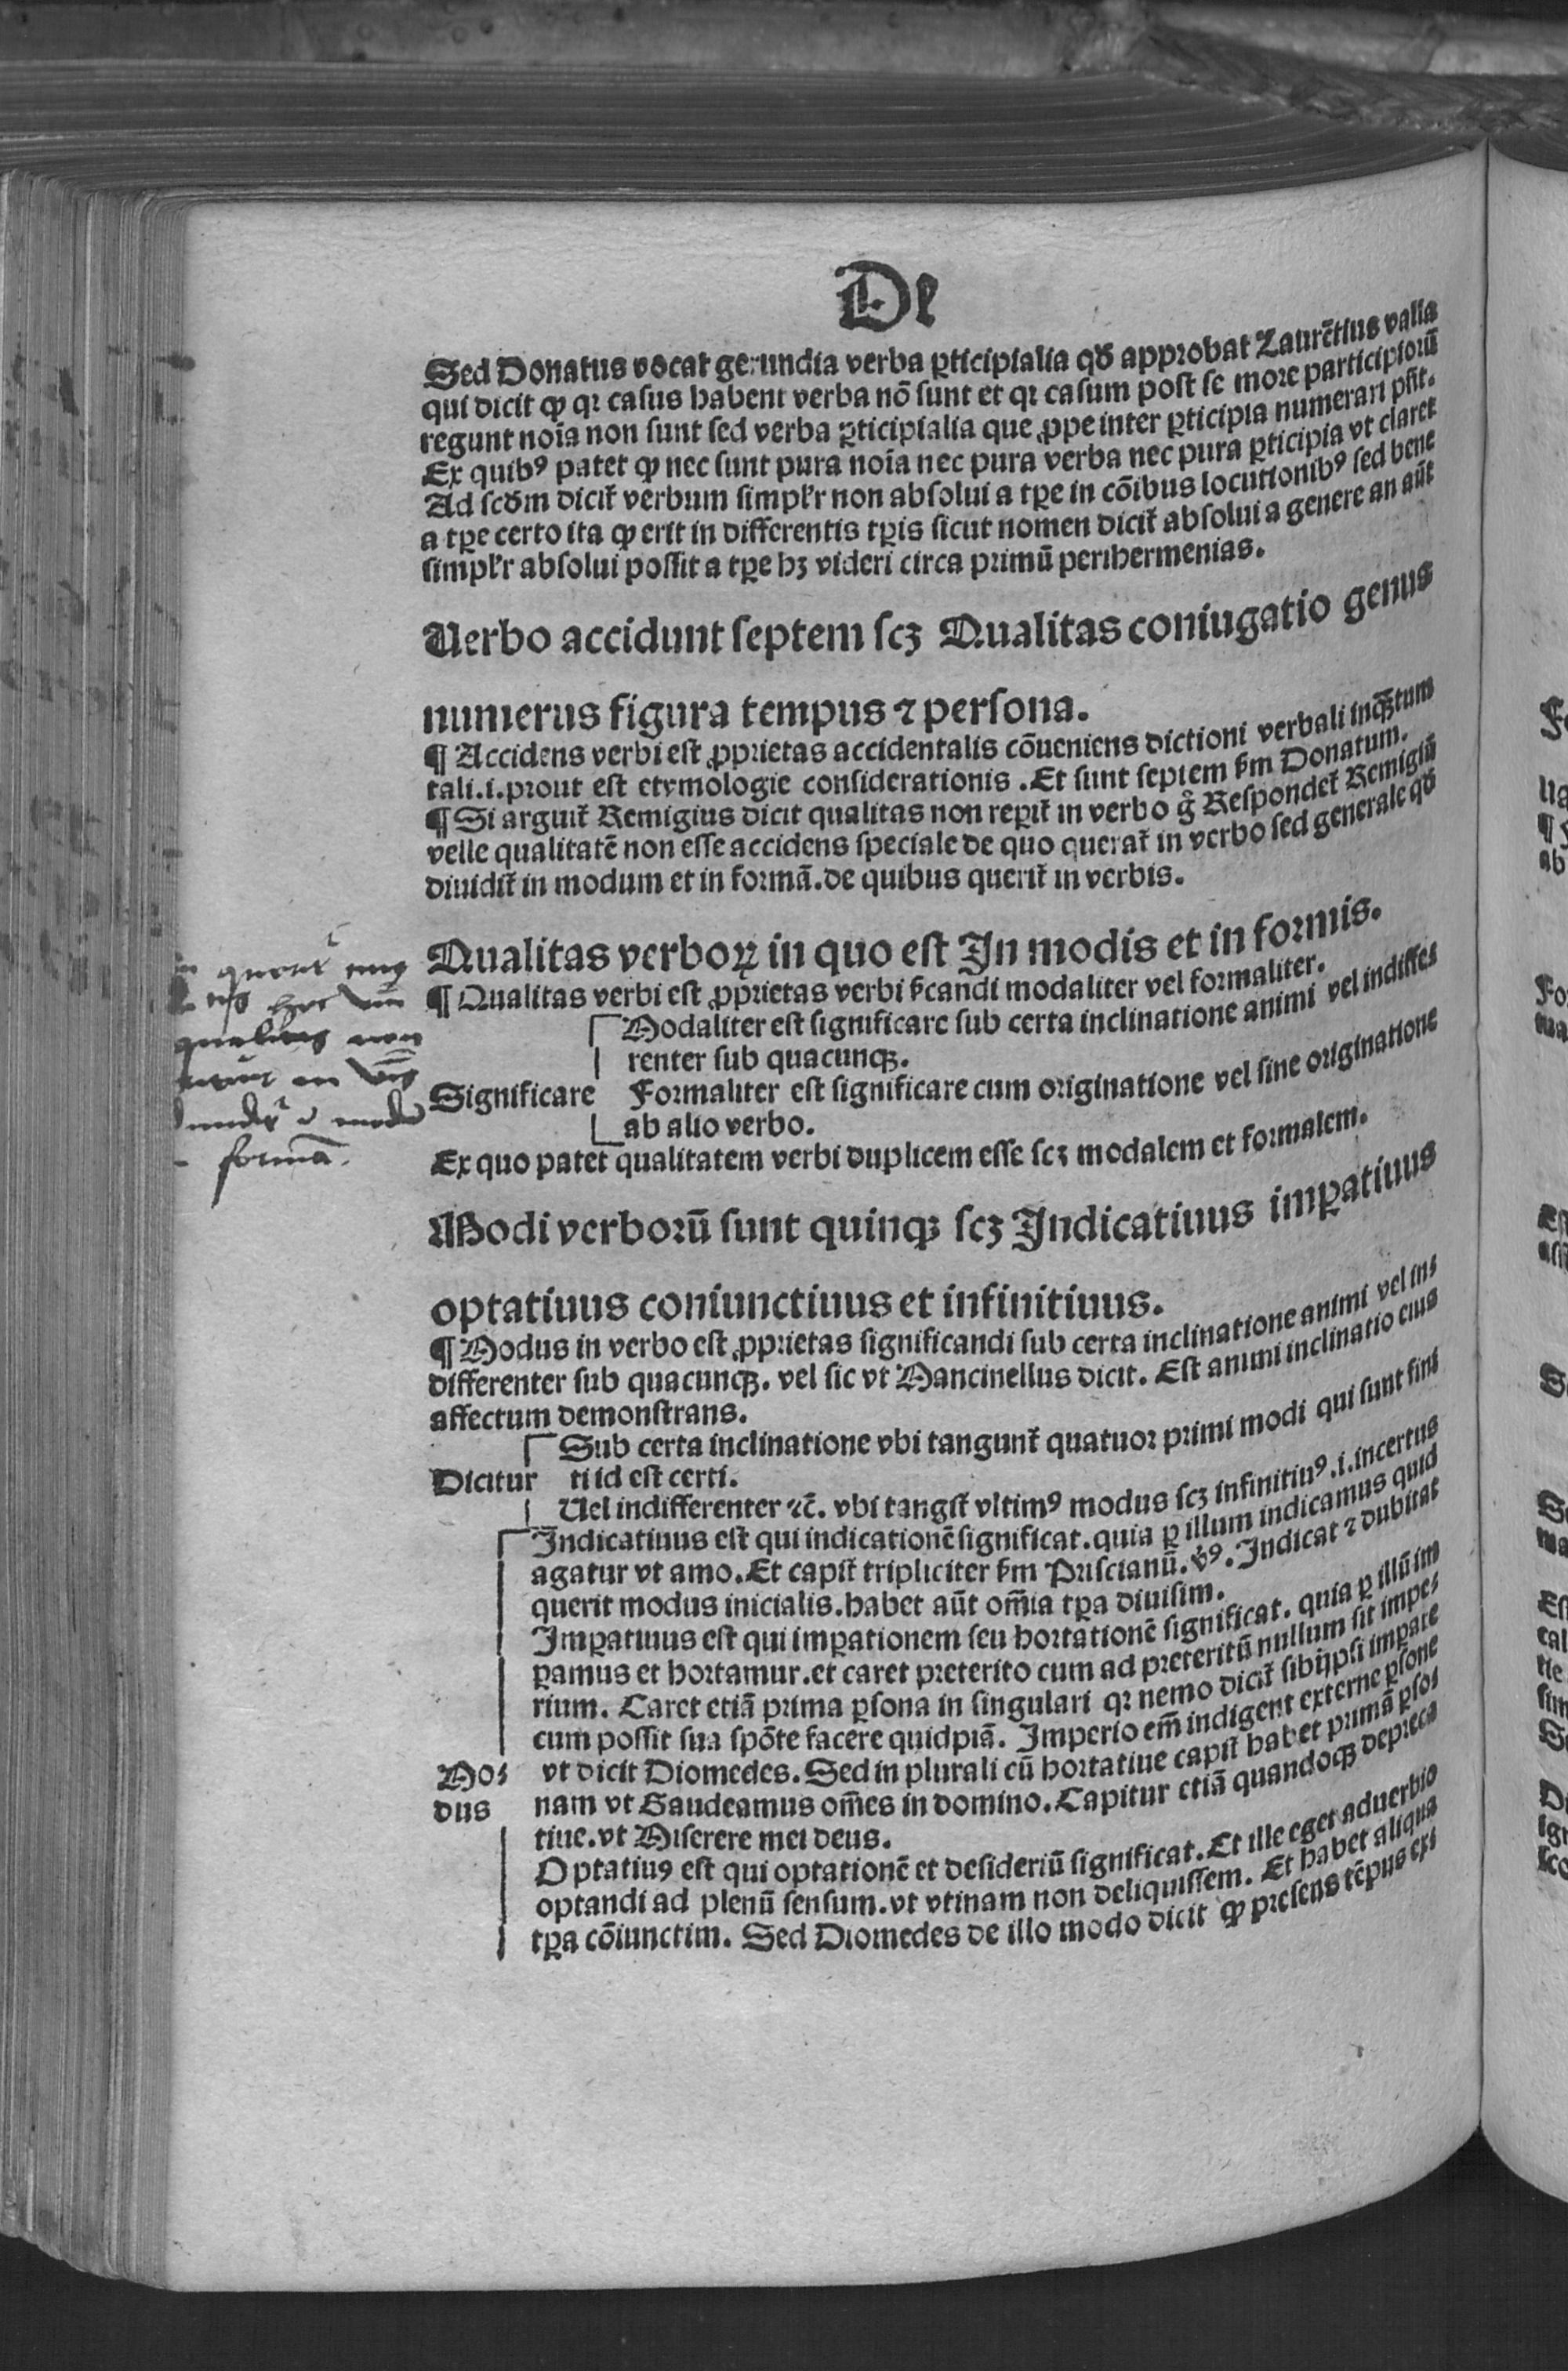 De
Sed Donatus vocat gerundia verba ꝑticipialia qđ approbat Laurētius valla
qui dicit ꝙ qꝛ casus habent verba nō sunt et qꝛ casum post se more participiorū
regunt noīa non sunt sed verba ꝑticipialia que ꝓpe inter ꝑticipia numerari pñt.
Ex quibꝰ patet ꝙ nec sunt pura noīa nec pura verba nec pura ꝑticipia vt claret
Ad scďm dicit̃ verbum simpłr non absolui a tꝑe in cōibus locutionibꝰ sed bene
a tꝑe certo ita ꝙ erit in differentis tꝑis sicut nomen dicit̃ absolui a genere an aūt
simpłr absolui possit a tꝑe hꝫ videri circa primū perihermenias.
Uerbo accidunt septem scꝫ Qualitas coniugatio genus
numerus figura tempus ⁊ persona.
¶ Accidens verbi est ꝓprietas accidentalis cōueniens dictioni verbali inqꝫtum
tali.i.prout est etymologie considerationis .Et sunt septem ẜm Donatum.
¶ Si arguit̃ Remigius dicit qualitas non reꝑit̃ in verbo g̊ Respondet̃ Remigiū
velle qualitatē non esse accidens speciale de quo querat̃ in verbo sed generale qđ
diuidit̃ in modum et in formā.de quibus querit̃ in verbis.
Qualitas verboꝝ in quo est In modis et in formis.
¶ Qualitas verbi est ꝓprietas verbi ẜcandi modaliter vel formaliter.
Modaliter est significare sub certa inclinatione animi vel indiffe⸗
renter sub quacunqꝫ.
Significare Formaliter est significare cum originatione vel sine originatione
ab alio verbo.
Ex quo patet qualitatem verbi duplicem esse scꝫ modalem et formalem.
qualitas non
formā.
Modi verborū sunt quinqꝫ scꝫ Indicatiuus imꝑatiuus
optatiuus coniunctiuus et infinitiuus.
¶ Modus in verbo est ꝓprietas significandi sub certa inclinatione animi vel in⸗
differenter sub quacunqꝫ. vel sic vt Mancinellus dicit. Est animi inclinatio eius
affectum demonstrans.
Sub certa inclinatione vbi tangunt̃ quatuor primi modi qui sunt fini
Dicitur ti id est certi.
Uel indifferenter ⁊c̄. vbi tangit̃ vltimꝰ modus scꝫ infinitiuꝰ.i.incertus
Indicatiuus est qui indicationē significat.quia ꝑ illum indicamus quid
agatur vt amo.Et capit̃ tripliciter ẜm Priscianū. v̉ꝰ. Indicat ⁊ dubitat
querit modus inicialis.habet aūt om̄ia tꝑa diuisim.
Imꝑatiuus est qui imꝑationem seu hortationē significat. quia ꝑ illū im
ꝑamus et hortamur.et caret preterito cum ad preteritū nullum sit impe⸗
rium. Caret etiā prima ꝑsona in singulari qꝛ nemo dicit̃ sibijpsi imꝑare
cum possit sua spōte facere quidpiā. Imperio em̄ indigent externe ꝑsone
Mo⸗ vt dicit Diomedes. Sed in plurali cū hortatiue capit̃ habet primā ꝑso⸗
dus nam vt Gaudeamus om̄es in domino. Capitur etiā quandoqꝫ depreca
tiue.vt Miserere mei deus.
Optatiuꝰ est qui optationē et desideriū significat. Et ille eget aduerbio
optandi ad plenū sensum.vt vtinam non deliquissem. Et habet aliqua
tꝑa cōiunctim. Sed Diomedes de illo modo dicit ꝙ presens tēpus exi